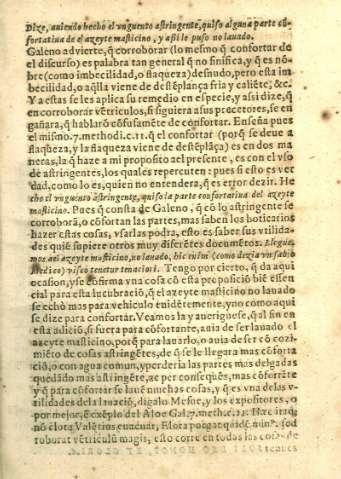 Dize, auiendo hecho el vnguento astringente, quiso alguna parte cõ-
fortatiua de el azeyte masticino, y assi le puso no lauado.
Galeno aduierte, q̃ corroborar (lo mesmo q̃ confortar de
el discurso) es palabra tan general q̃ no sinifica, y q̃ es nõ-
bre (como imbecilidad, o flaqueza) desnudo, pero esta im
becilidad, o aq̃lla viene de destẽplança fria y caliẽte, &c.
Y a estas se les aplica su remedio en especie, y assi dize, q̃
en corroborar vẽtriculos, si siguiera a sus procetores, se en
gañara, q̃ hablarõ cõfusamẽte de confortar. Enseña pues
el mismo.7.methodi.c.11. q̃ el confortar (porq̃ se deue a
flaq̃eza, y la flaqueza viene de destẽplãça) es en dos ma
neras, la q̃ haze a mi proposito al presente, es con el vso
de astringentes, los quales repercuten: pues si esto es ver
dad, como lo es, quien no entenderà, q̃ es error dezir. He
cho el vnguento astringente, quiso la parte confortatiua del azeyte
masticino. Pues q̃ consta de Galeno, q̃ cõ lo astringente se
corroborã, o cõfortan las partes, mas saben los boticarios
hazer estas cosas, vsarlas podra, esto es saber sus vtilida-
des quiẽ supiere otros muy diferẽtes documẽtos. Llegue,
mas aei azeyte masticino, no lauado, hic enim (como dezia vn sabio
Medico) visco tenetur tenaciori. Tengo por cierto, q̃ da aqui
ocasion, y se confirma vna cosa cõ esta proposició biẽ essen
cial para esta lucubració, q̃ el azeyte masticino no lauado
se echò mas para vehiculo euidẽtemente, y no como aqui
se dize para confortar. Veamos la y aueriguese, q̃ al fin en
esta adiciõ, si fuera para cõfortante, auia de ser lauado el
azeyte masticino, porq̃ para lauarlo, o auia de ser cõ co-
zimiẽto de cosas astringẽtes, de q̃ se le llegara mas cõforta
ciõ, o con agua comun, y perderia las partes mas delgadas
quedãdo mas astringẽte, ac per consequẽs, mas cõfortãte
y q̃ para cõfortar se laue muchas cosas, y q̃ es vna de las v-
tilidades de la lauaciõ, digalo Mesue, y los expositores, o
por mejor, Exẽplo del Aloe Gal.7.meth.c.11.
roborat vẽtriculũ magis, esto corre en todas las cosas de